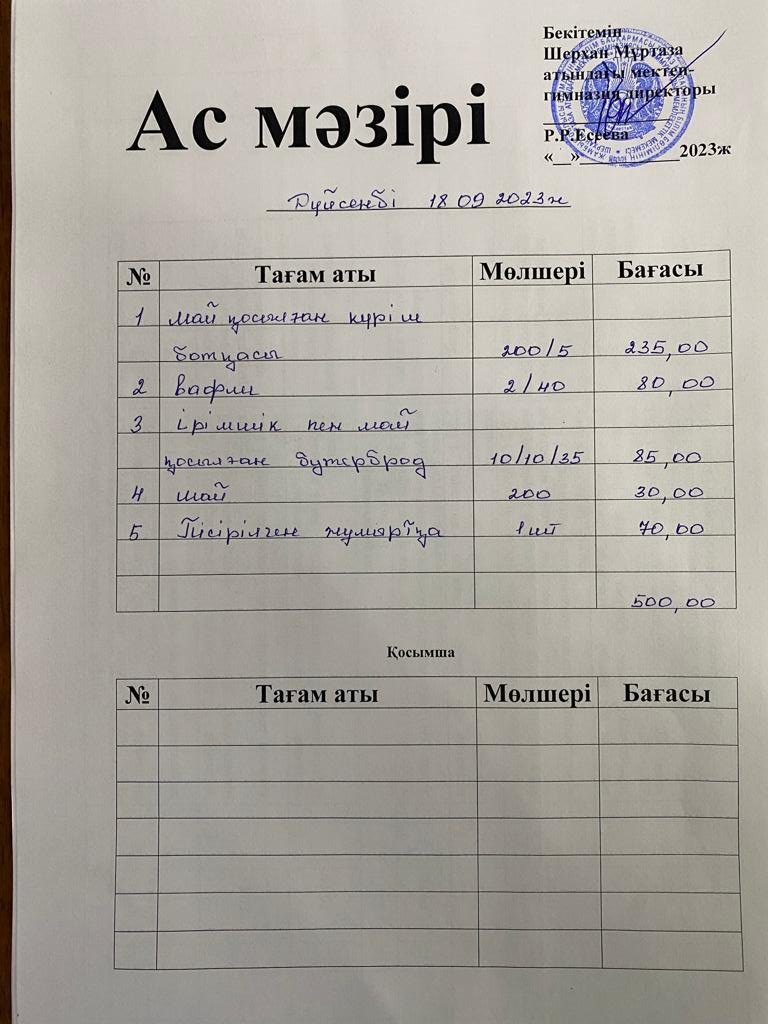 Бекітемін
Шерхан Мұртаза
атындағы мектеп-
гимназия директоры
Р.Р.Есеева
«__»____________2023ж
Ас мәзірі
Дүйсенбі 18 09 2023ж
№ Тағам аты Мөлшері Бағасы
1 май қосылған күріш
ботқасы 200/5 235,00
2 вафли 2/40 80,00
3 ірімшік пен май
қосылған бутерброд 10/10/35 85,00
4 шай 200 30,00
5 Пісірілген жұмыртқа 1 шт 70,00
500,00
Қосымша
№ Тағам аты Мөлшері Бағасы